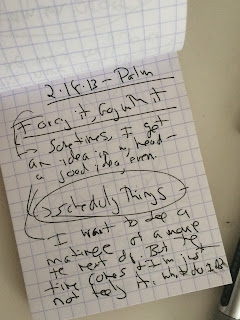 2.18.13 - Palm
Forcing it, Going with it
→ Sometimes, I get
an idea in my head -
a good idea, even.
→ Scheduling Things
I want to see a
matinee of a movie
the next day. But the
time comes & I'm just
not feeling it. What do I do?